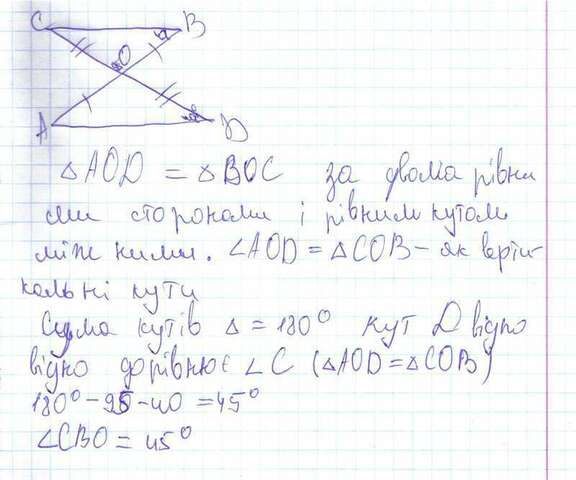 C B
O
A D
△AOD = △BOC за двома рівни
ми сторонами і рівним кутом
між ними. ∠AOD = △COB – як верти
кальні кути
Сума кутів △ = 180° кут D відпо
відно дорівнює ∠C (△AOD = △COB)
180° – 95 – 40 = 45°
∠CBO = 45°